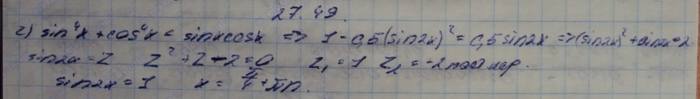 27.49.
2) sin⁴x + cos⁴x = sinxcosx => 1 - 0,5(sin2x)² = 0,5 sin2x => (sin2x)² + sin2x = 2
sin2x = Z Z² + Z - 2 = 0 Z₁ = 1 Z₂ = -2
sin2x = 1 x = π/4 + πn.